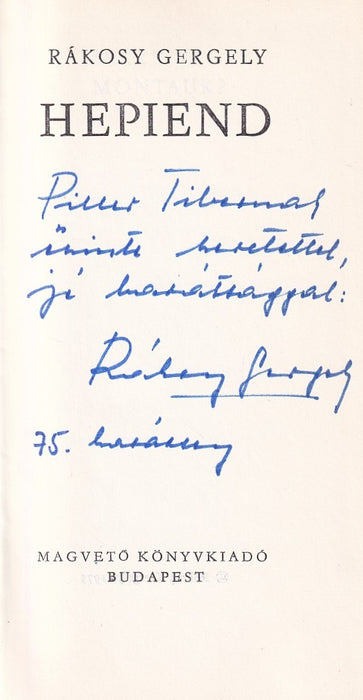 RÁKOSY GERGELY
HEPIEND
Piller Tibornak
őszinte szeretettel,
jó barátsággal:
Rákosy Gergely
75. karácsony
MAGVETŐ KÖNYVKIADÓ
BUDAPEST